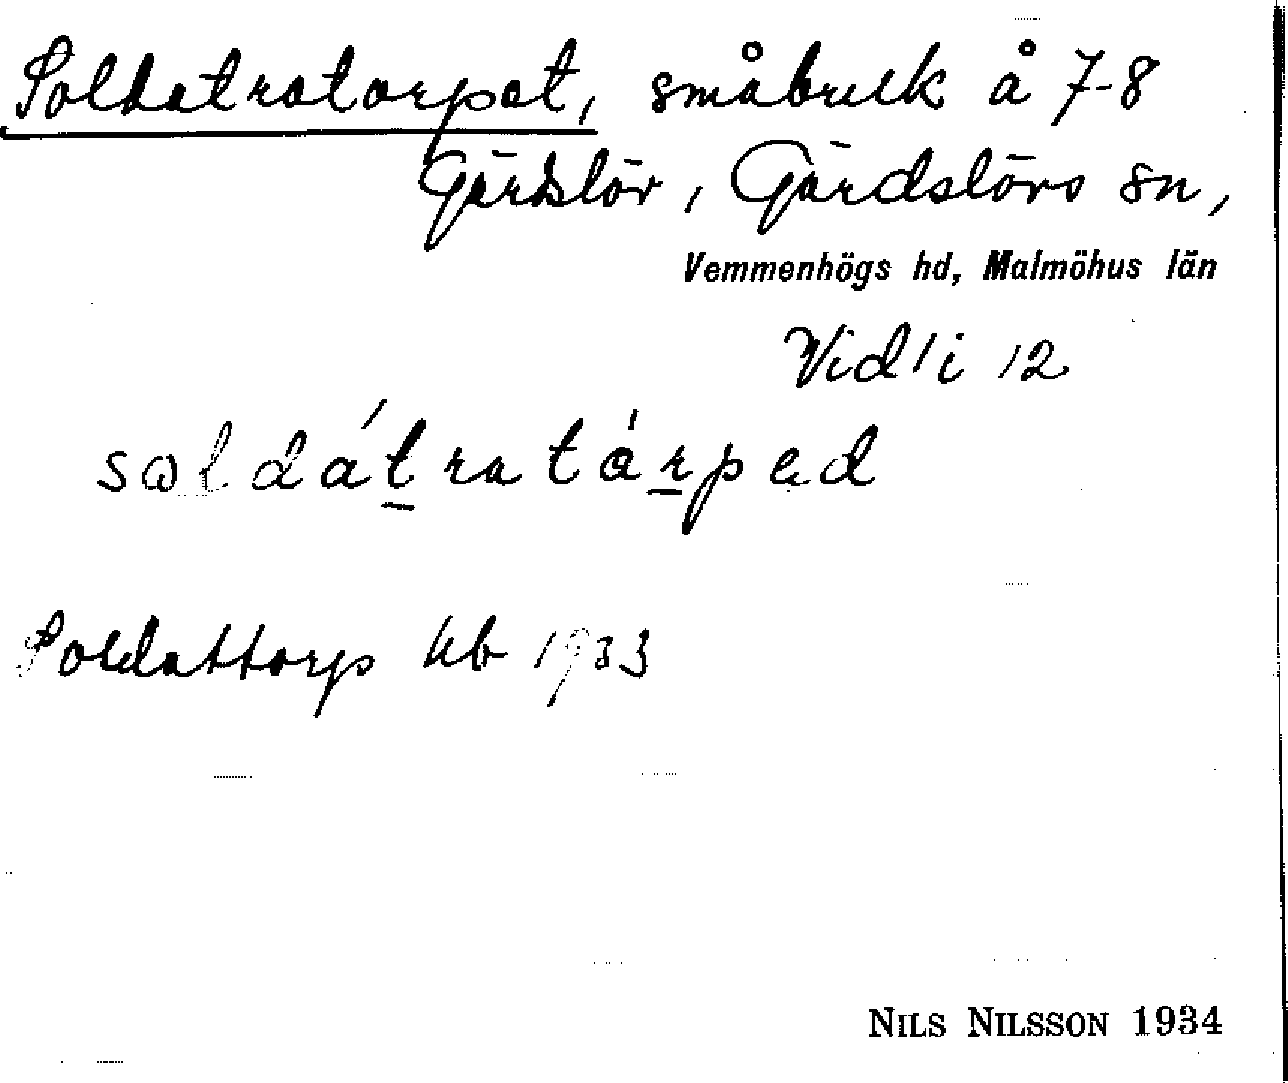 Soldatratorpet, småbruk å 7-8
Gärdslöv, Gärdslövs sn,
Vemmenhögs hd, Malmöhus län
Vidl i 12
soldátratárped
Soldattorp kb 1933
NILS NILSSON 1934